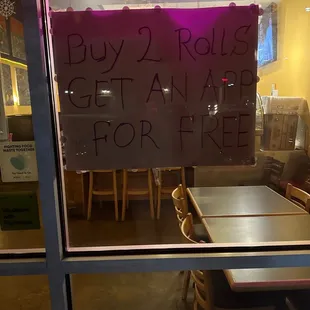 Buy 2 Rolls
GET AN APP
FOR FREE